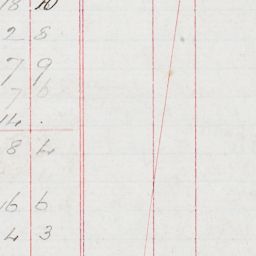 18 10
2 8
7 9
7 6
14 .
8 4
16 6
4 3